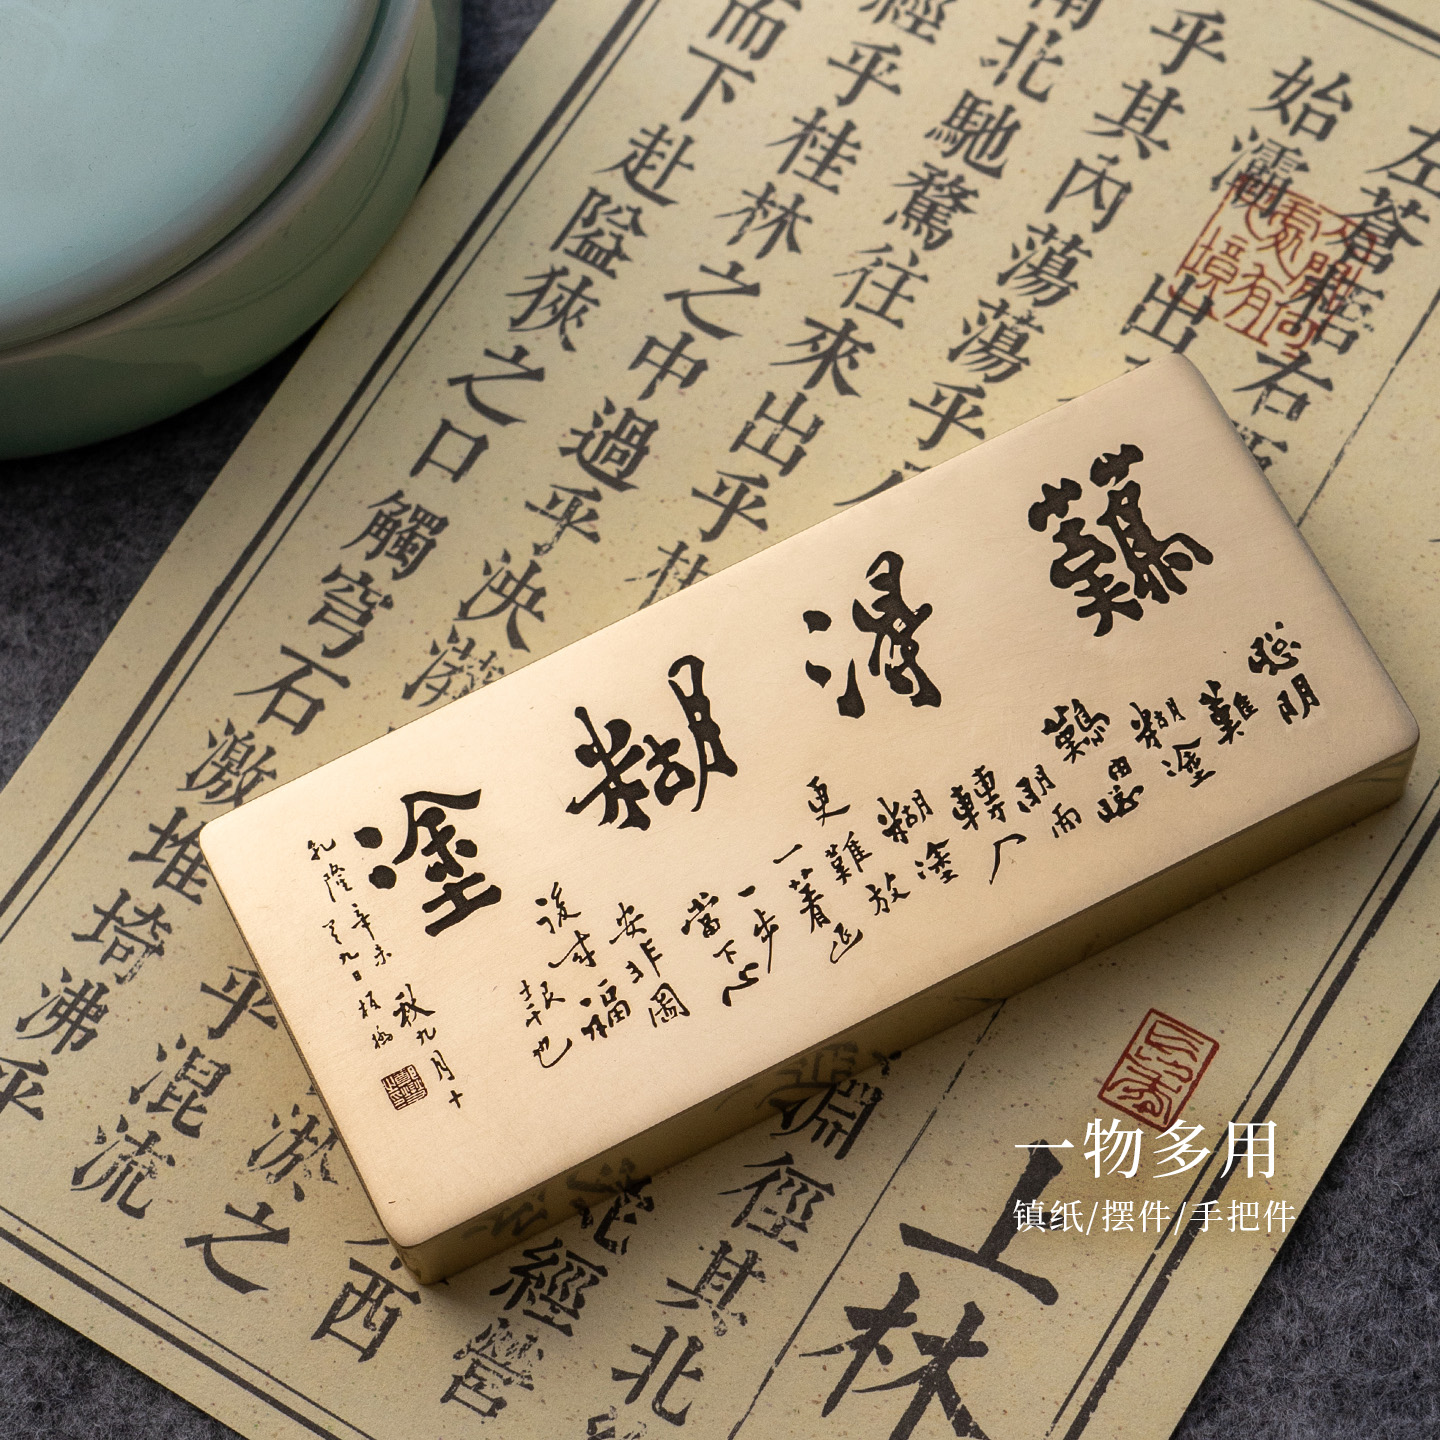 難得糊塗
聰明
難
糊塗
難
由聰
明而
轉入
糊塗
更難
放
一著退
一步
當下心
安非圖
後來福
報也
乾隆辛未秋九月十
又九日板橋
左蒼梧右
始灞
出
乎其內蕩蕩乎八
南北馳騖往來出乎
經乎桂林之中過乎泱漭
而下赴隘狹之口觸穹石激堆埼沸乎
乎混流
淤之
西
淵徑其北
經營
上林
一物多用
镇纸/摆件/手把件